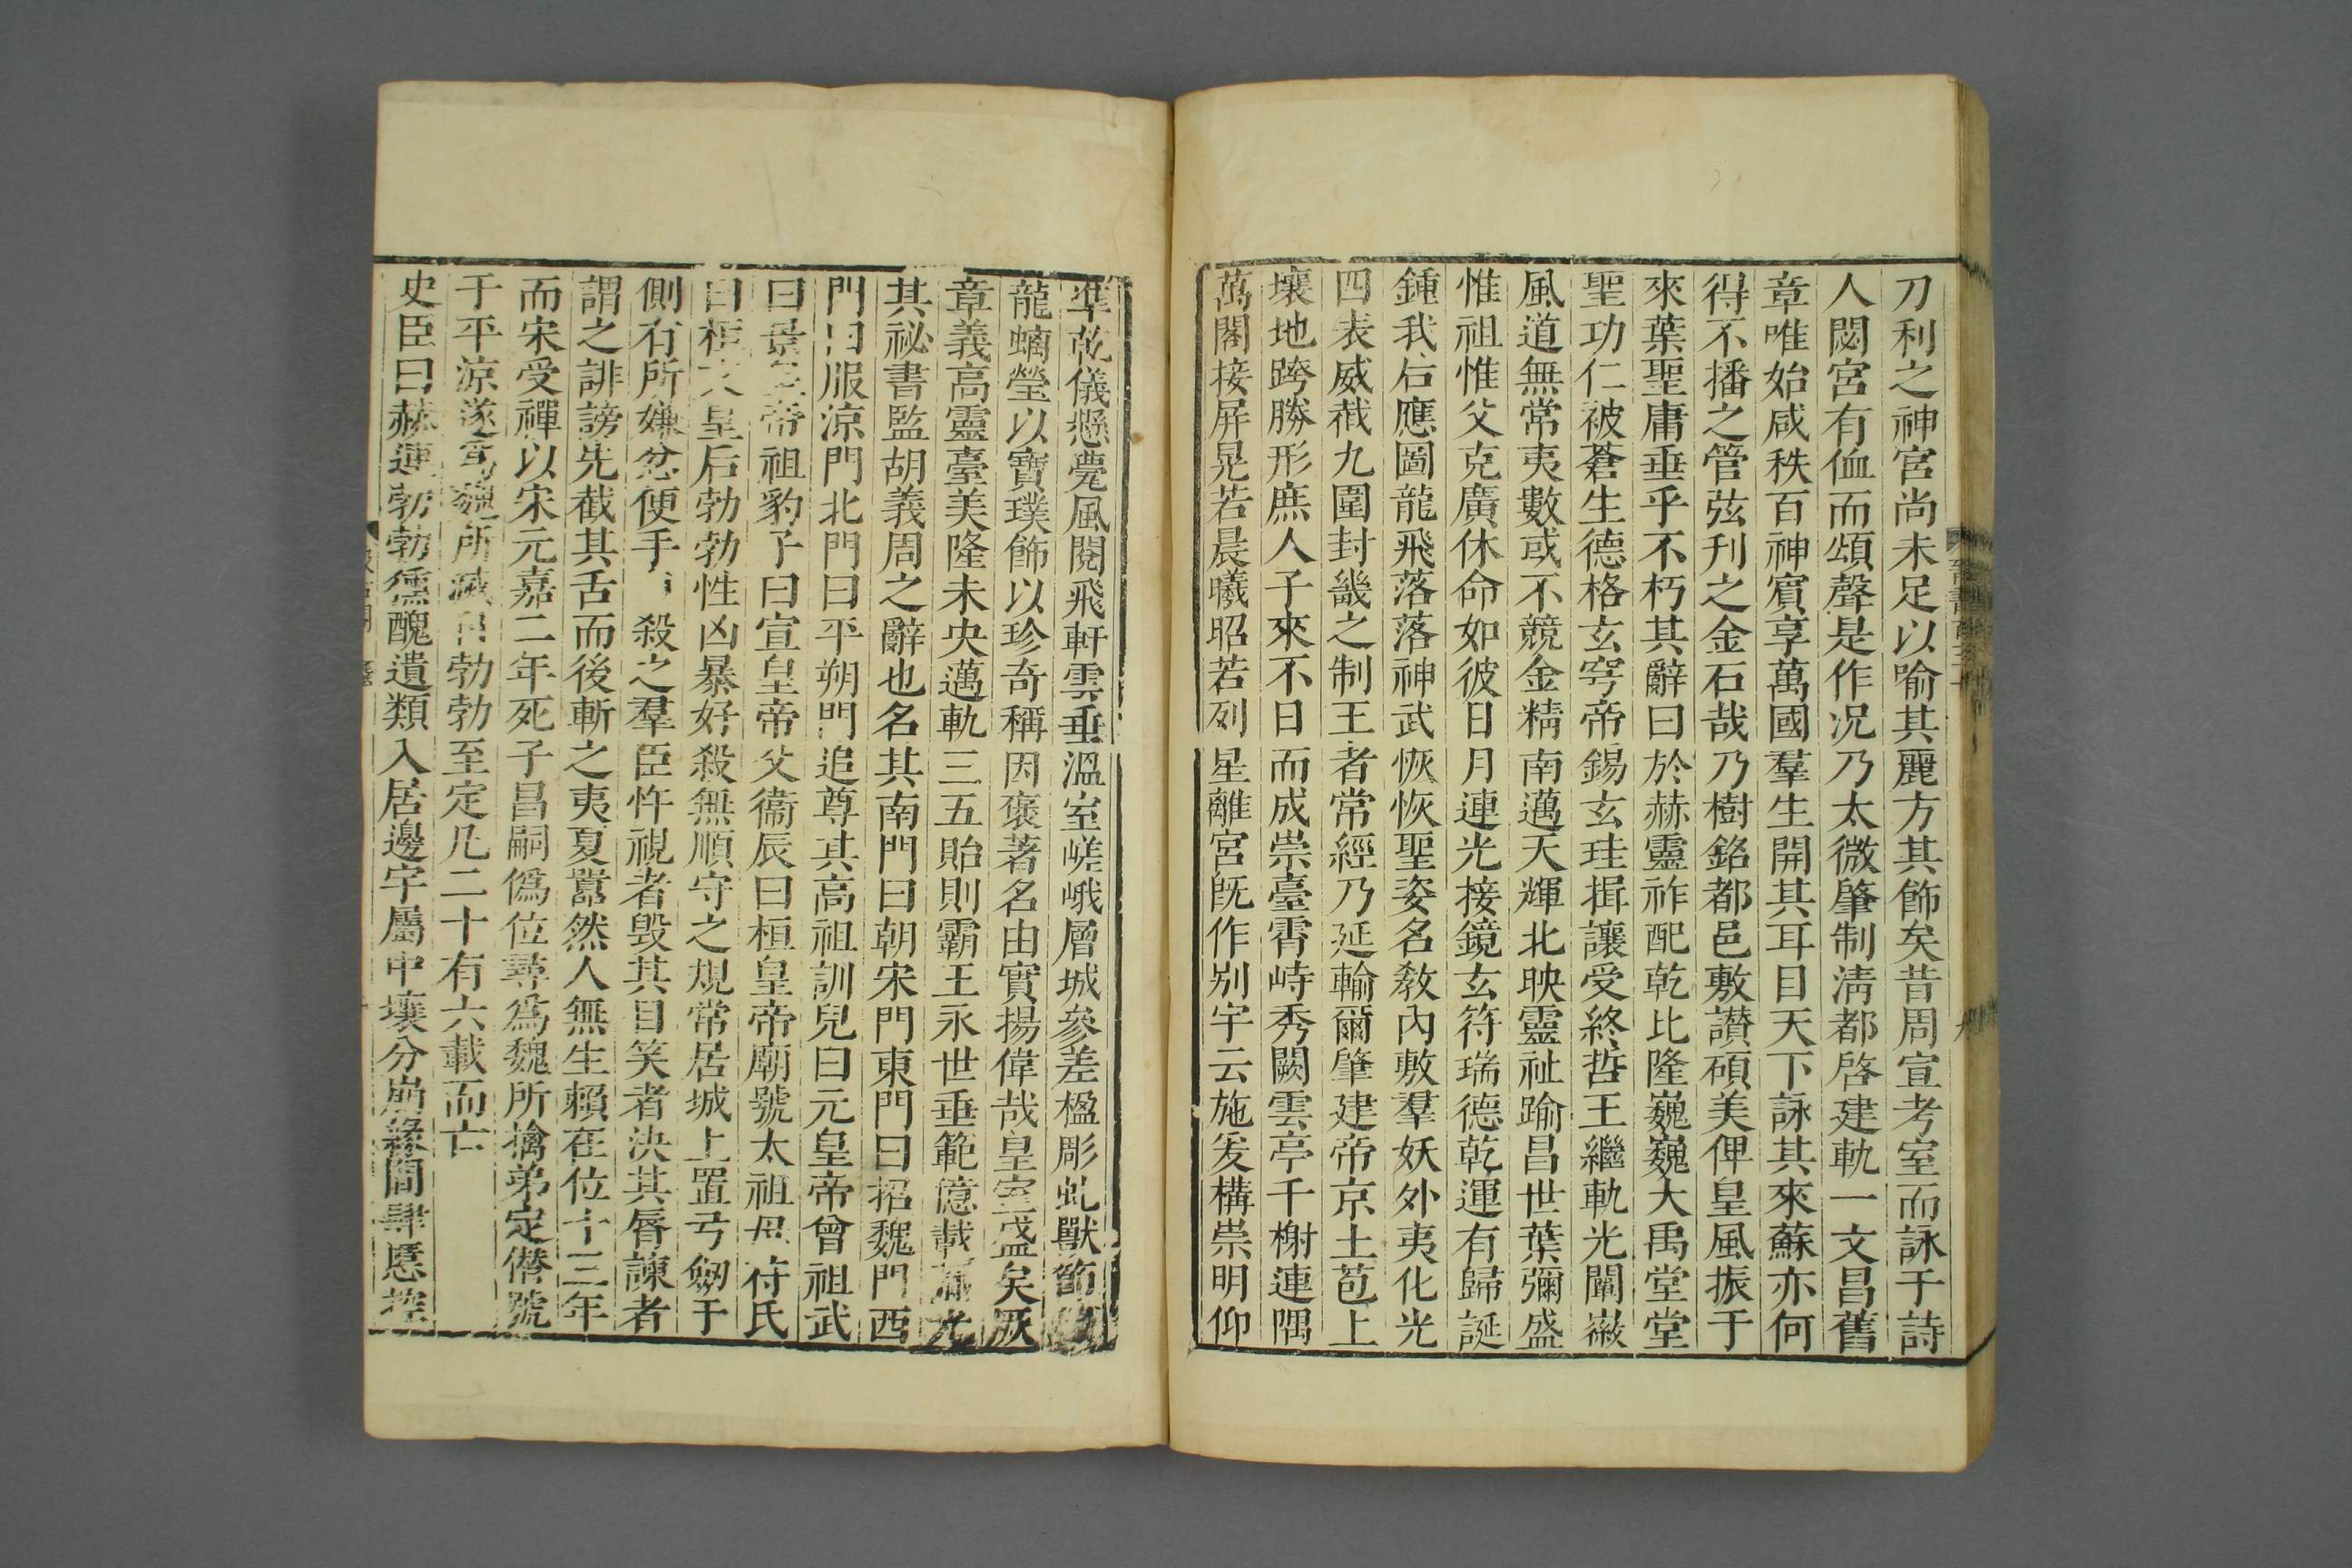 刀利之神宮尚未足以喻其麗方其飾矣昔周宣考室而詠于詩
人閟宮有侐而頌聲是作況乃太微肇制淸都啓建軌一文昌舊
章唯始咸秩百神賓享萬國羣生開其耳目天下詠其來蘇亦何
得不播之管弦刋之金石哉乃樹銘都邑敷讃碩美俾皇風振于
來葉聖庸垂乎不朽其辭曰於赫靈祚配乾比隆巍巍大禹堂堂
聖功仁被蒼生德格玄穹帝錫玄珪揖讓受終哲王繼軌光闡徽
風道無常夷數或不競金精南邁天輝北映靈祉踰昌世葉彌盛
惟祖惟父克廣休命如彼日月連光接鏡玄符瑞德乾運有歸誕
鍾我后應圖龍飛落落神武恢恢聖姿名敎內敷羣妖外夷化光
四表威截九圍封畿之制王者常經乃延輸爾肇建帝京土苞上
壤地跨勝形庶人子來不日而成崇臺霄峙秀闕雲亭千榭連隅
萬閣接屏晃若晨曦昭若列星離宮旣作别宇云施爰構崇明仰
準乾儀懸甍風閱飛軒雲垂溫室嵯峨層城參差楹彫虬獸節
龍螭瑩以寶璞飾以珍奇稱因褒著名由實揚偉哉皇室盛矣厥
章義高靈臺美隆未央邁軌三五貽則霸王永世垂範億載
其祕書監胡義周之辭也名其南門曰朝宋門東門曰招魏門西
門曰服涼門北門曰平朔門追尊其高祖訓兒曰元皇帝曾祖武
曰景皇帝祖豹子曰宣皇帝父衞辰曰桓皇帝廟號太祖母苻氏
曰桓文皇后勃勃性凶暴好殺無順守之規常居城上置弓劒于
側有所嫌忿便手殺之羣臣忤視者毀其目笑者決其脣諫者
謂之誹謗先截其舌而後斬之夷夏嚻然人無生賴在位十三年
而宋受禪以宋元嘉二年死子昌嗣僞位尋爲魏所擒弟定僭號
于平涼遂爲魏所滅自勃勃至定凡二十有六載而亡
史臣曰赫連勃勃獯醜遺類入居邊宇屬中壤分崩緣閒肆慝控